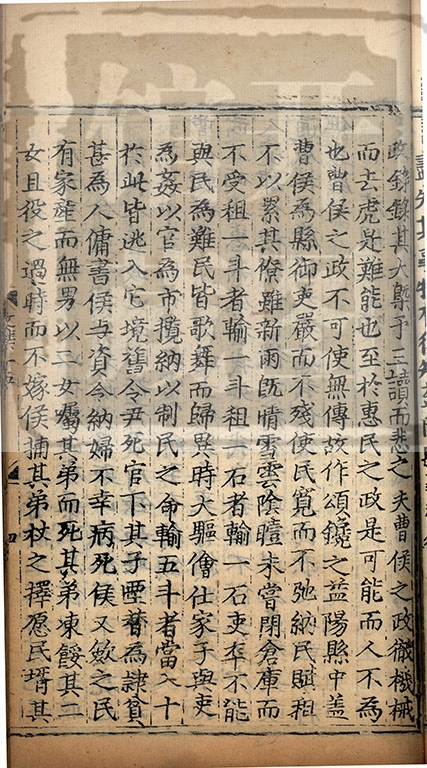 政錄錄其大槩予三讀而悲之夫曹侯之政徹機械
而去虎是難能也至於惠民之政是可能而人不為
也曹侯之政不可使無傳故作頌鑱之益陽縣中蓋
曹侯為縣御吏嚴而不殘使民寬而不弛納民賦租
不以累其僚雖新雨既情雪雲陰曀未嘗閉倉庫而
不受租一斗者輸一斗租一石者輸一石吏卒不能
與民為難民皆歌舞而歸異時大駔儈仕家子與吏
為姦以官為市攬納以制民之命輸五斗者當入十
於此皆逃入它境舊令尹死官下其子堙替為隷貧
甚為人傭書侯与資令納婦不幸病死侯又斂之民
有家產而無男以二女屬其弟而死其弟凍餒其二
女且役之過時而不嫁侯捕其弟杖之擇愿民壻其